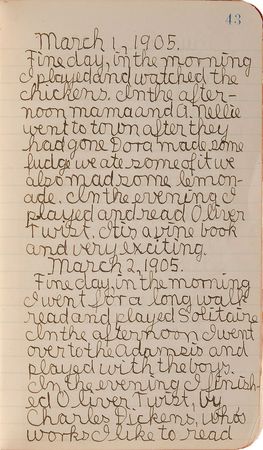 43
March 1, 1905.
Fine day, in the morning
I played and watched the
chickens. In the after-
noon mama and A. Nellie
went to town after they
had gone Dora made some
fudge we ate some of it we
also mad some lemon-
ade. In the evening I
played and read Oliver
Twist. It is a fine book
and very exciting.
March 2, 1905.
Fine day, in the morning
I went for a long walk
read and played Solitaire
In the afternoon I went
over to the Adamsis and
played with the boys.
In the evening I finish-
ed Oliver Twist, by
Charles Dickens, who's
works I like to read